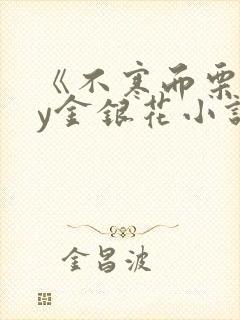 《不寒而栗
y金银花小说
金昌波